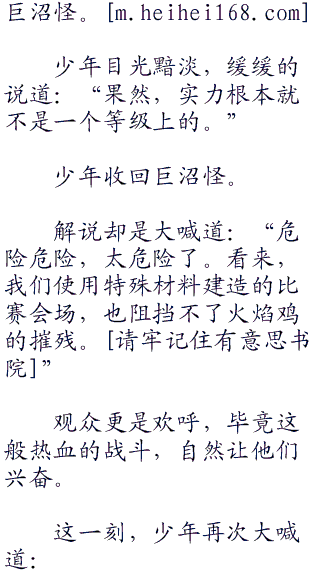 巨沼怪。[m.heihei168.com]
少年目光黯淡，缓缓的
说道：“果然，实力根本就
不是一个等级上的。”
少年收回巨沼怪。
解说却是大喊道：“危
险危险，太危险了。看来，
我们使用特殊材料建造的比
赛会场，也阻挡不了火焰鸡
的摧残。[请牢记住有意思书
院]”
观众更是欢呼，毕竟这
般热血的战斗，自然让他们
兴奋。
这一刻，少年再次大喊
道：